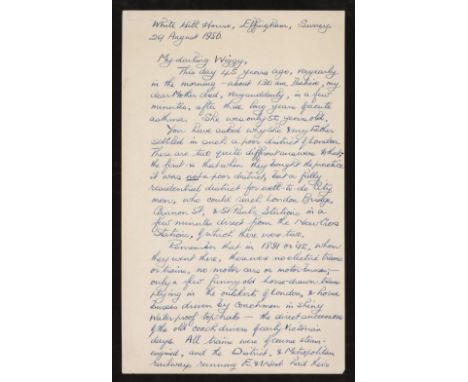 White Hill House, Effingham, Surrey
29 August 1956.
My darling Wiggy,
This day 45 years ago, very early
in the morning – about 1.30 am. I believe, my
dear Mother died, very suddenly, in a few
minutes, after three long years of acute
asthma. She was only 50 years old.
You have asked why she & my father
settled in such a poor district of London.
There are two quite different answers to that;
the first is that when they bought the practice
it was not a poor district, but a fully
residential district for well-to-do City
men, who could reach London Bridge,
Cannon St. & St Paul's Stations in a
few minutes direct from the New Cross
Stations, of which there were two.
Remember that in 1891 or '92, when
they went there, there were no electric trams
or trains, no motor cars or motor buses; –
only a few funny old horse-drawn trams
plying in the outskirts of London, & horse
busses driven by coachmen in shiny
waterproof top hats – the direct ancestors
of the old coach drivers of early Victorian
days. All trains were of course steam-
engined, and the District & Metropolitan
railways running E. & West had their